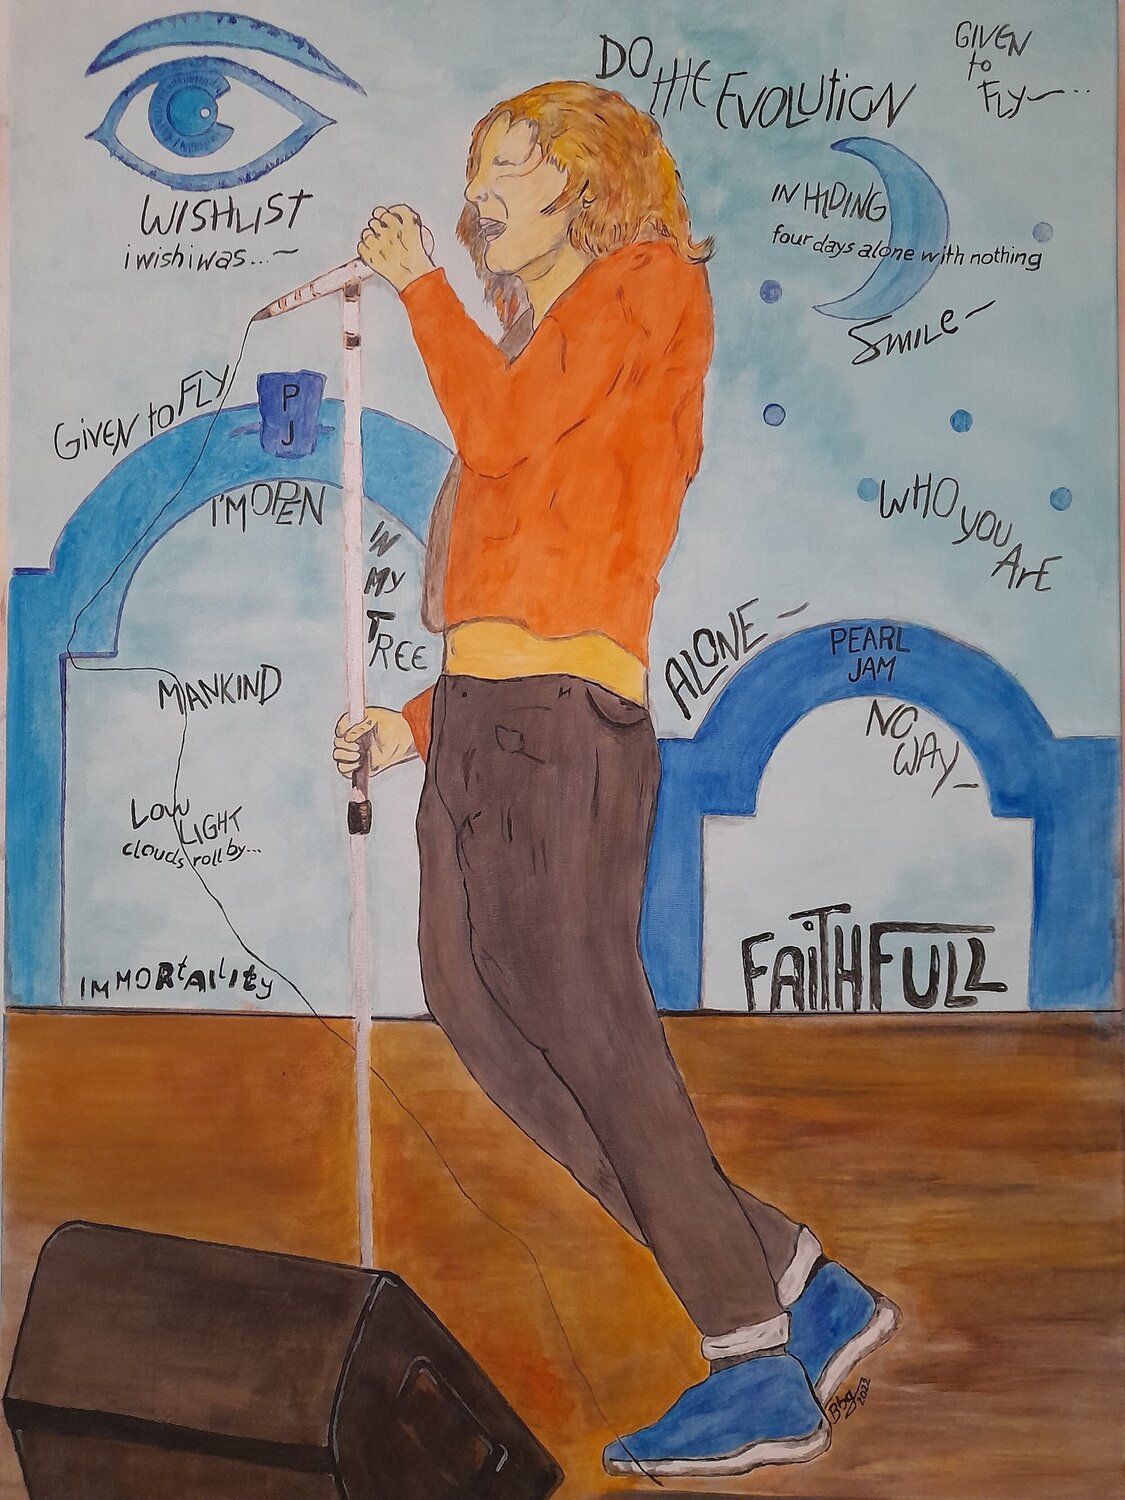 DO THE EVOLUTION
GIVEN
to
FLY
WISHLIST
i wish i was...
IN HIDING
four days alone with nothing
SMILE
GIVEN to FLY
P
J
I'M OPEN
IN
MY
TREE
WHO YOU ARE
ALONE
PEARL
JAM
NO
WAY
MANKIND
LOW
LIGHT
clouds roll by...
IMMORtAlity
FAiTHFULL
2022